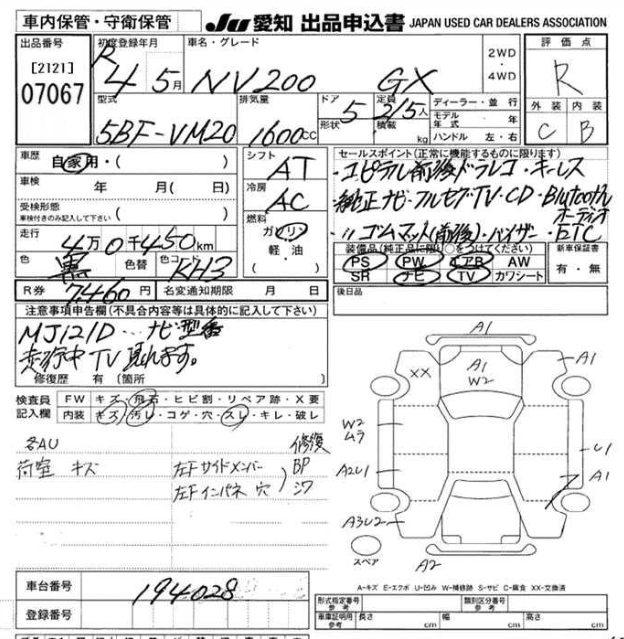 車内保管・守衛保管 JU 愛知 出品申込書 JAPAN USED CAR DEALERS ASSOCIATION
出品番号 初度登録年月 車名・グレード 2WD 評価点
[2121] R 4 5月 NV200 GX ・ 4WD R
07067
型式 排気量 ドア 定員 ディーラー・並行 外装 内装
5BF-VM20 1600cc 5 2/5人 モデル年式 年 C B
形状 積載 kg ハンドル 左・右
車歴 自家用・( ) シフト AT セールスポイント(正常に機能するものに限ります)
車検 年 月( 日) 冷房 AC ・エピテル前後ドラレコ・キーレス
受検形態 ・純正ナビ・フルセグTV・CD・Blutooth
車検付きのみ記入して下さい ( ) 燃料 オーディオ
走行 4万0千450km ガソリン ・〃ゴムマット(前後)・バイザー・ETC
軽油 装備品(純正品に限り○をつけてください) 新車保証書
色 黒 色替 色コード KH3 PS PW エアB AW 有・無
SR ナビ TV カワシート
R券 7,460円 名変通知期限 月 日 後日品
注意事項申告欄(不具合内容等は具体的に記入して下さい)
MJ121D…ナビ型番
走行中TV見れます。
修復歴 有(箇所
検査員記入欄 FW キズ・飛石・ヒビ割・リペア跡・X要
内装 キズ・汚レ・コゲ・穴・スレ・キレ・破レ
各AU 修復
荷室 キズ 左Fサイドメンバー BP
左Fインパネ 穴 シワ
A1
XX A1 W2 A1
W2 ムラ
A2U1 U1
A1
A3U2
スペア A2
A-キズ E-エクボ U-凹み W-補修跡 S-サビ C-腐食 XX-交換済
車台番号 194028 形式指定番号 参考 類別区分番号 参考
登録番号 車庫証明用 参考 長さ cm 幅 cm 高さ cm